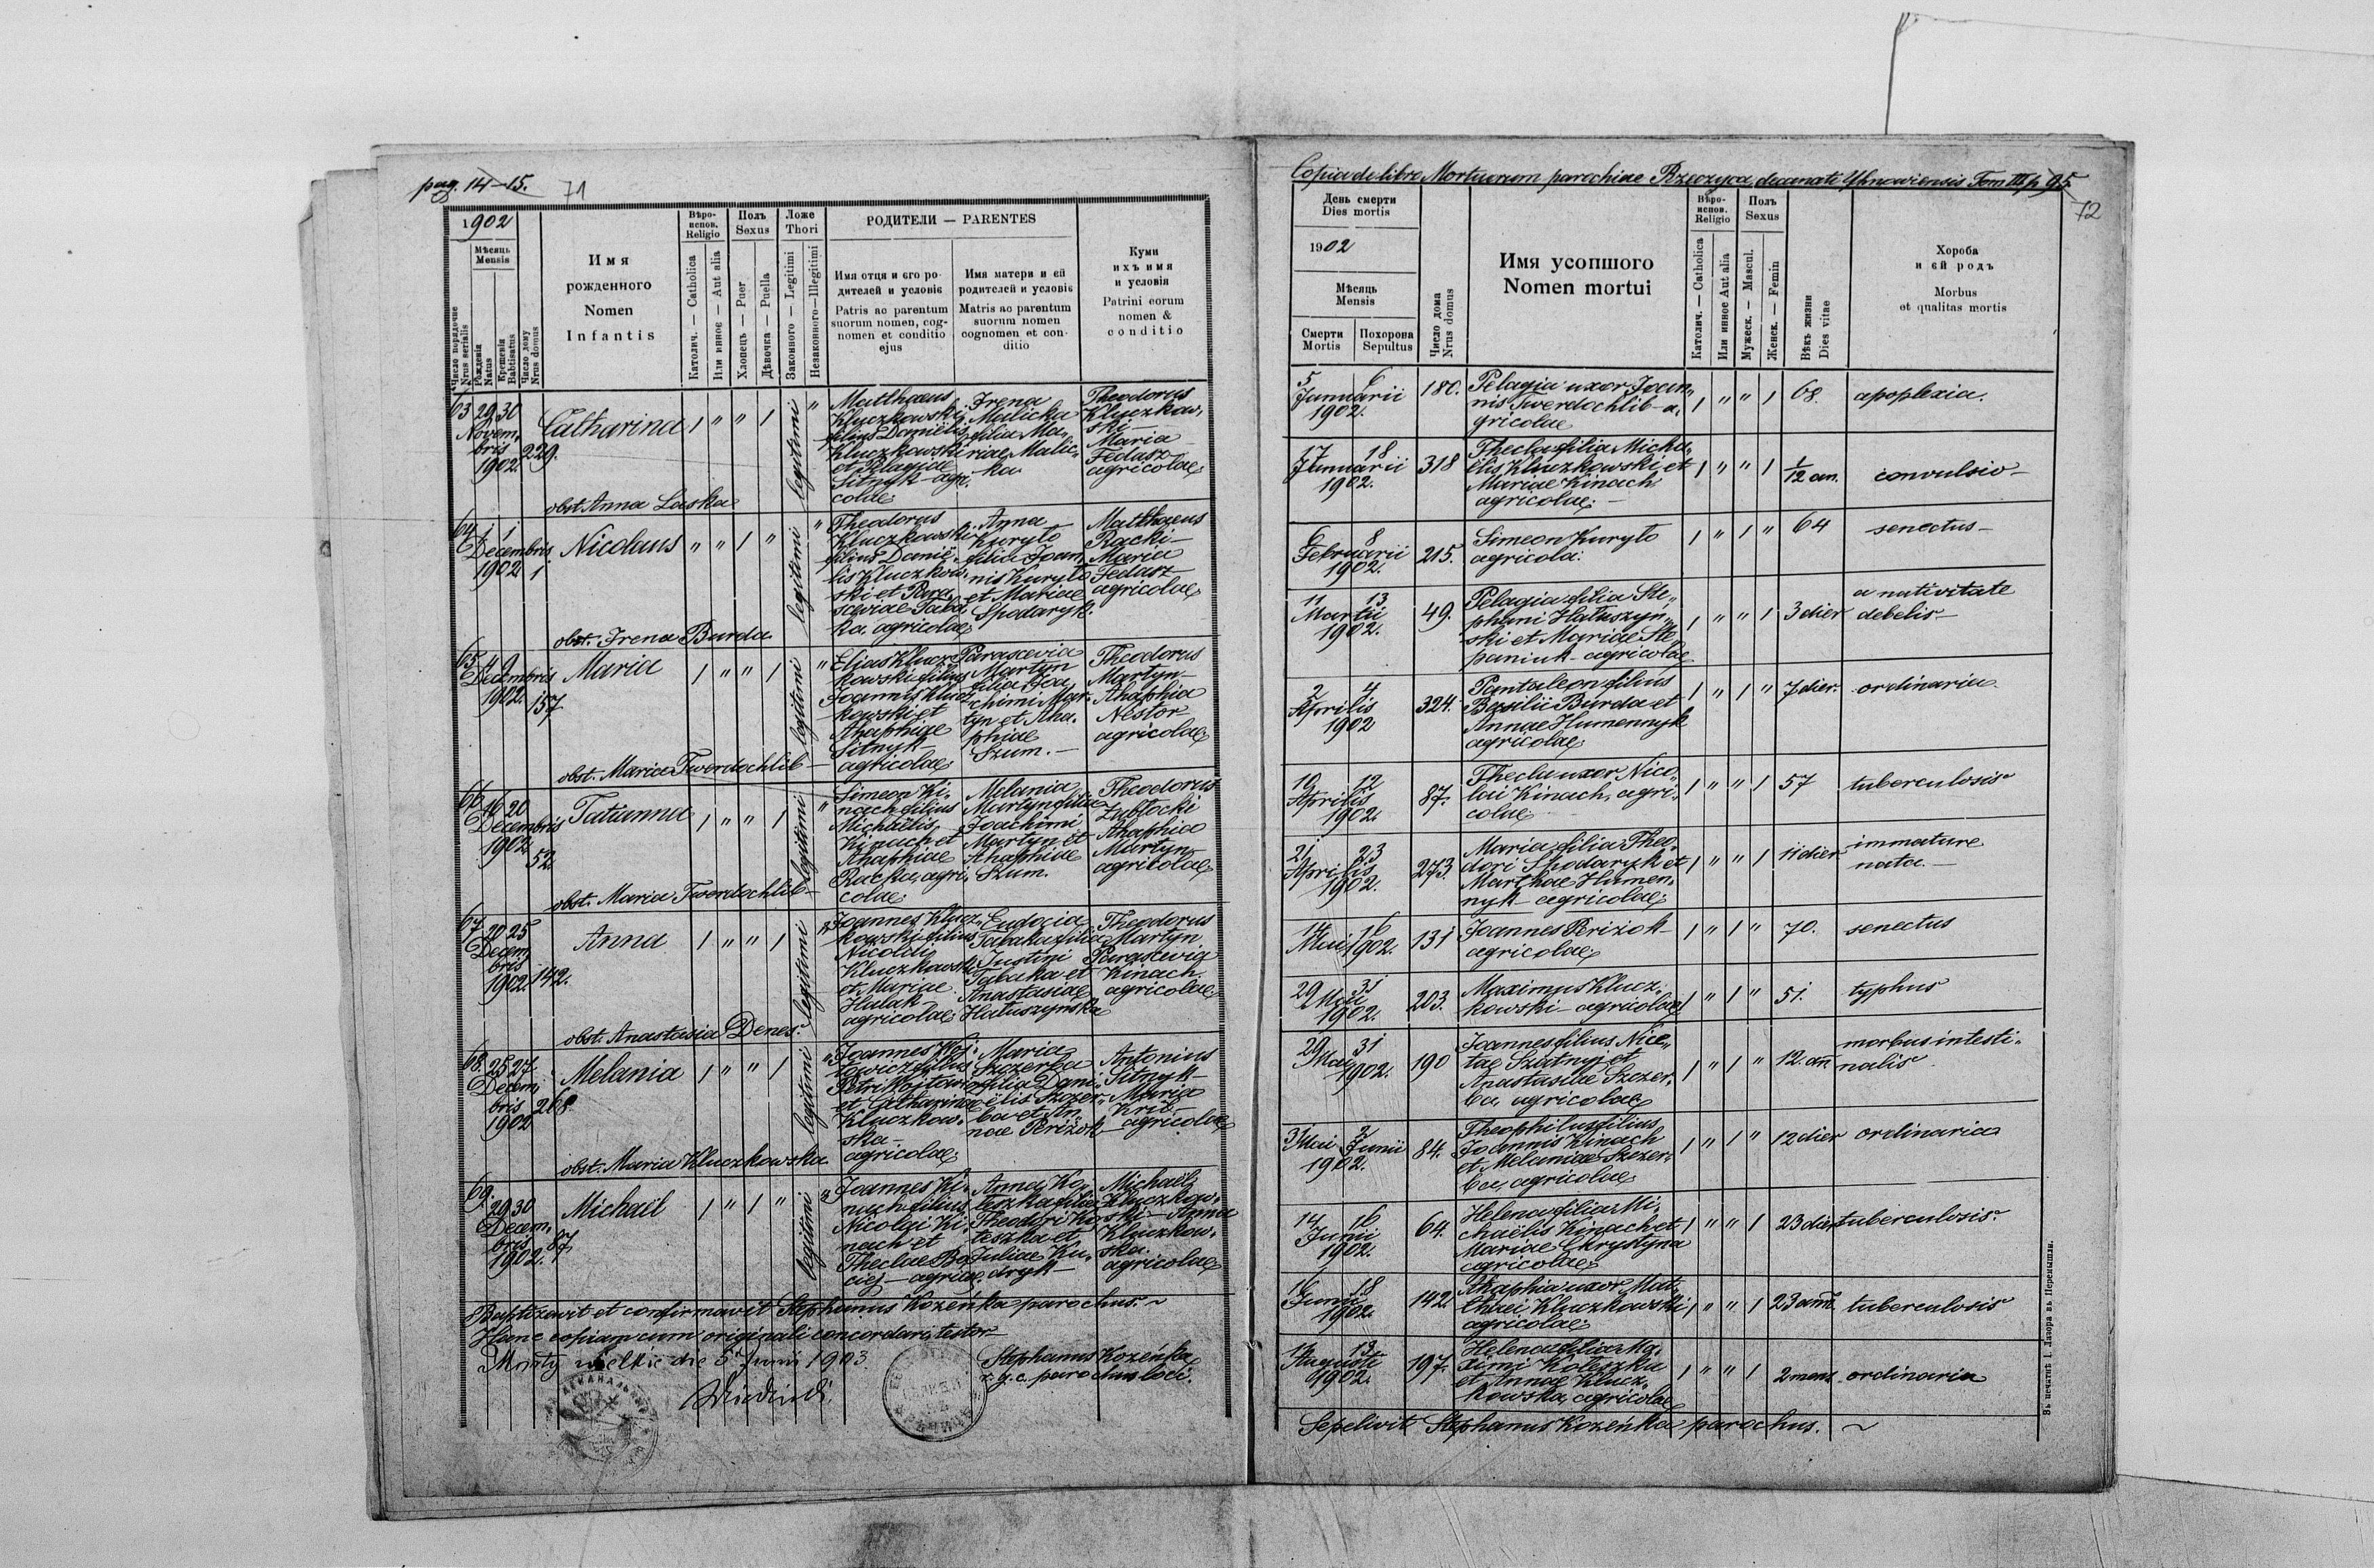 pag. 14–15.
71
1902
Мѣсяць
Mensis
Число порядочне
Nrus serialis
Рожденія
Natus
Крещенія
Babtisatus
Число дому
Nrus domus
Имя
рожденного
Nomen
Infantis
Вѣро-
испов.
Religio
Католич. — Catholica
Или иноє — Aut alia
Полъ
Sexus
Хлопець — Puer
Дѣвочка — Puella
Ложе
Thori
Законного — Legitimi
Незаконного — Illegitimi
РОДИТЕЛИ — PARENTES
Имя отця и єго ро-
дителей и условіє
Patris ac parentum
suorum nomen, cog-
nomen et conditio
ejus
Имя матери и єй
родителей и условіє
Matris ac parentum
suorum nomen
cognomen et con-
ditio
Куми
ихъ имя
и условія
Patrini eorum
nomen &
conditio
63 29 30
Novem,
bris
1902. 229.
Catharina / " " / legitimi "
Matthaeus
Kluczkowski,
filius Daniëlis
Kluczkowski
et Pelagiae
Sitnyk – agr.
colae
Irena
Malicka
filia Ma-
riae Malic-
ka
Theodorus
Kluczkow,
ski –
Maria
Fedasz
agricolae
obst. Anna Laska
64 1 1
Decembris
1902 1
Nicolaus " " / " legitimi "
Theodorus
Kluczkowski
filius Danië-
lis Kluczkow-
ski et Para-
sceviae Taba
ka. agricolae
Anna
Kuryło
filia Joan,
nis Kuryło
et Mariae
Spodaryk.
Matthaeus
Racki –
Maria
Fedasz
agricolae
obst. Irena Burda
65 4 9
Decembris
1902. 157
Maria / " " / legitimi "
Elias Klucz-
kowski filius
Joannis Klucz
kowski et
Ahaphiae
Sitnyk –
agricolae
Parascevia
Martyn
filia Joa
chimi Mar-
tyn et Aha-
phiae
Szum. –
Theodorus
Martyn –
Ahaphia
Nestor
agricolae
obst. Maria Twerdochlib –
66 16 20
Decembris
1902 52.
Tatianna / " " / legitimi "
Simeon Ki-
nach filius
Michaëlis
Kinach et
Ahaphiae
Racka, agri,
colae
Melania
Martyn filia
Joachimi
Martyn et
Ahaphiae
Szum.
Theodorus
Zabłocki
Ahaphia
Martyn –
agricolae
obst. Maria Twerdochlib –
67 20 25
Decem,
bris
1902. 142.
Anna / " " / legitimi "
Joannes Klucz,
kowski filius
Nicolai
Kluczkowski
et Mariae
Halak –
agricolae
Eudocia
Tabaka filia
Justini
Tabaka et
Anastasiae
Hałuszynska
Theodorus
Martyn
Parascevia
Kinach.
agricolae
obst. Anastasia Denes.
68. 25 27
Decem,
bris
1902 268
Melania / " " / legitimi "
Joannes Woj-
towicz filius
Petri Wojtowicz
et Catharinae
Kluczkow-
ska –
agricolae
Maria
Szczerba
filia Dani-
ëlis Szczer-
ba et An,
nae Perižok
Antonius
Sitnyk
Maria
agricolae
obst. Maria Kluczkowska
69. 29 30
Decem,
bris
1902. 87
Michaël / " / " legitimi "
Joannes Ki-
nach filius
Nicolai Ki-
nach et
Theclae Bo
ciej – agrico
Anna Ko-
teszka filia
Theodori Ko
teszka et
Juliae Ku-
dryk –
Michaël
Kluczkow-
ski – Anna
Kluczkow-
ska.
agricolae
Baptizavit et confirmavit Stephanus Kozeńka parochus. ~
Hanc copiam cum originali concordari testor
Mosty wielkie die 5 Junii 1903.
Stephanus Kozeńka
r. g. c. parochus loci.
Copia de libro Mortuorum parochiae Rzeczyca decanati Uhnowiensis Tom III p. 95.
72
День смерти
Dies mortis
1902
Мѣсяць
Mensis
Смерти
Mortis
Похорона
Sepultus
Число дома
Nrus domus
Имя усопшого
Nomen mortui
Вѣро-
испов.
Religio
Католич. — Catholica
Или инноє Aut alia
Полъ
Sexus
Мужеск. — Mascul.
Женск. — Femin
Вѣкъ жизни
Dies vitae
Хороба
и єй родъ
Morbus
et qualitas mortis
5 6
Januarii
1902. 180.
Pelagia uxor Joan,
nis Twerdochlib – a,
gricolae
/ " " / 68. apoplexia.
17 18
Januarii
1902. 318
Thecla filia Micha-
ëlis Kluczkowski et
Mariae Kinach
agricolae –
/ " " / 1/12 an. convulsio –
6 8
Februarii
1902. 215.
Simeon Kuryło
agricola.
/ " / " 64 senectus –
11 13
Martii
1902. 49.
Pelagia filia Ste,
phani Hałuszyn,
ski et Mariae Ste
paniuk – agricolae
/ " " / 3 dier a nativitate
debelis –
2 4
Aprilis
1902 324.
Pantaleon filius
Basilii Burda et
Annae Humennyk
agricolae
/ " / " 7 dier. ordinaria.
10 12
Aprilis
1902. 87.
Thecla uxor Nico,
lai Kinach, agri,
colae
/ " " / 57 tuberculosis
21 23
Aprilis
1902. 273.
Maria filia Theo,
dori Spodaryk et
Marthae Humen,
nyk – agricolae
/ " " / 11 dier immature
nata. –
14 16
Mai 1902. 131
Joannes Perižok –
agricolae
/ " / " 70. senectus
29 31
Mai
1902. 203.
Maximus Klucz,
kowski – agricolae
/ " / " 51. typhus
29 31
Mai
1902. 190
Joannes filius Nice,
tae Szatnyj et
Anastasiae Szczer,
ba, agricolae
/ " / " 12. an. morbus intesti-
nalis
31 2
Mai Junii
1902. 84.
Theophilus filius
Joannis Kinach
et Melaniae Szczer,
ba, agricolae
/ " / " 12 dier ordinaria
14 16
Junii
1902. 64.
Helena filia Mi,
chaëlis Kinach et
Mariae Chrystyna
agricolae
/ " " / 23 dier tuberculosis.
16 18
Junii
1902 142
Ahaphia uxor Mat,
thaei Kluczkowski
agricolae
/ " " / 23 ann. tuberculosis
13
Augusti
1902. 197.
Helena filia Ma,
ximi Koteszka
et Annae Klucz,
kowska, agricolae
/ " " / 2 mens. ordinaria
Sepelivit Stephanus Kozeńka parochus. ~
Въ печатнѣ І. Лазора въ Перемышли.